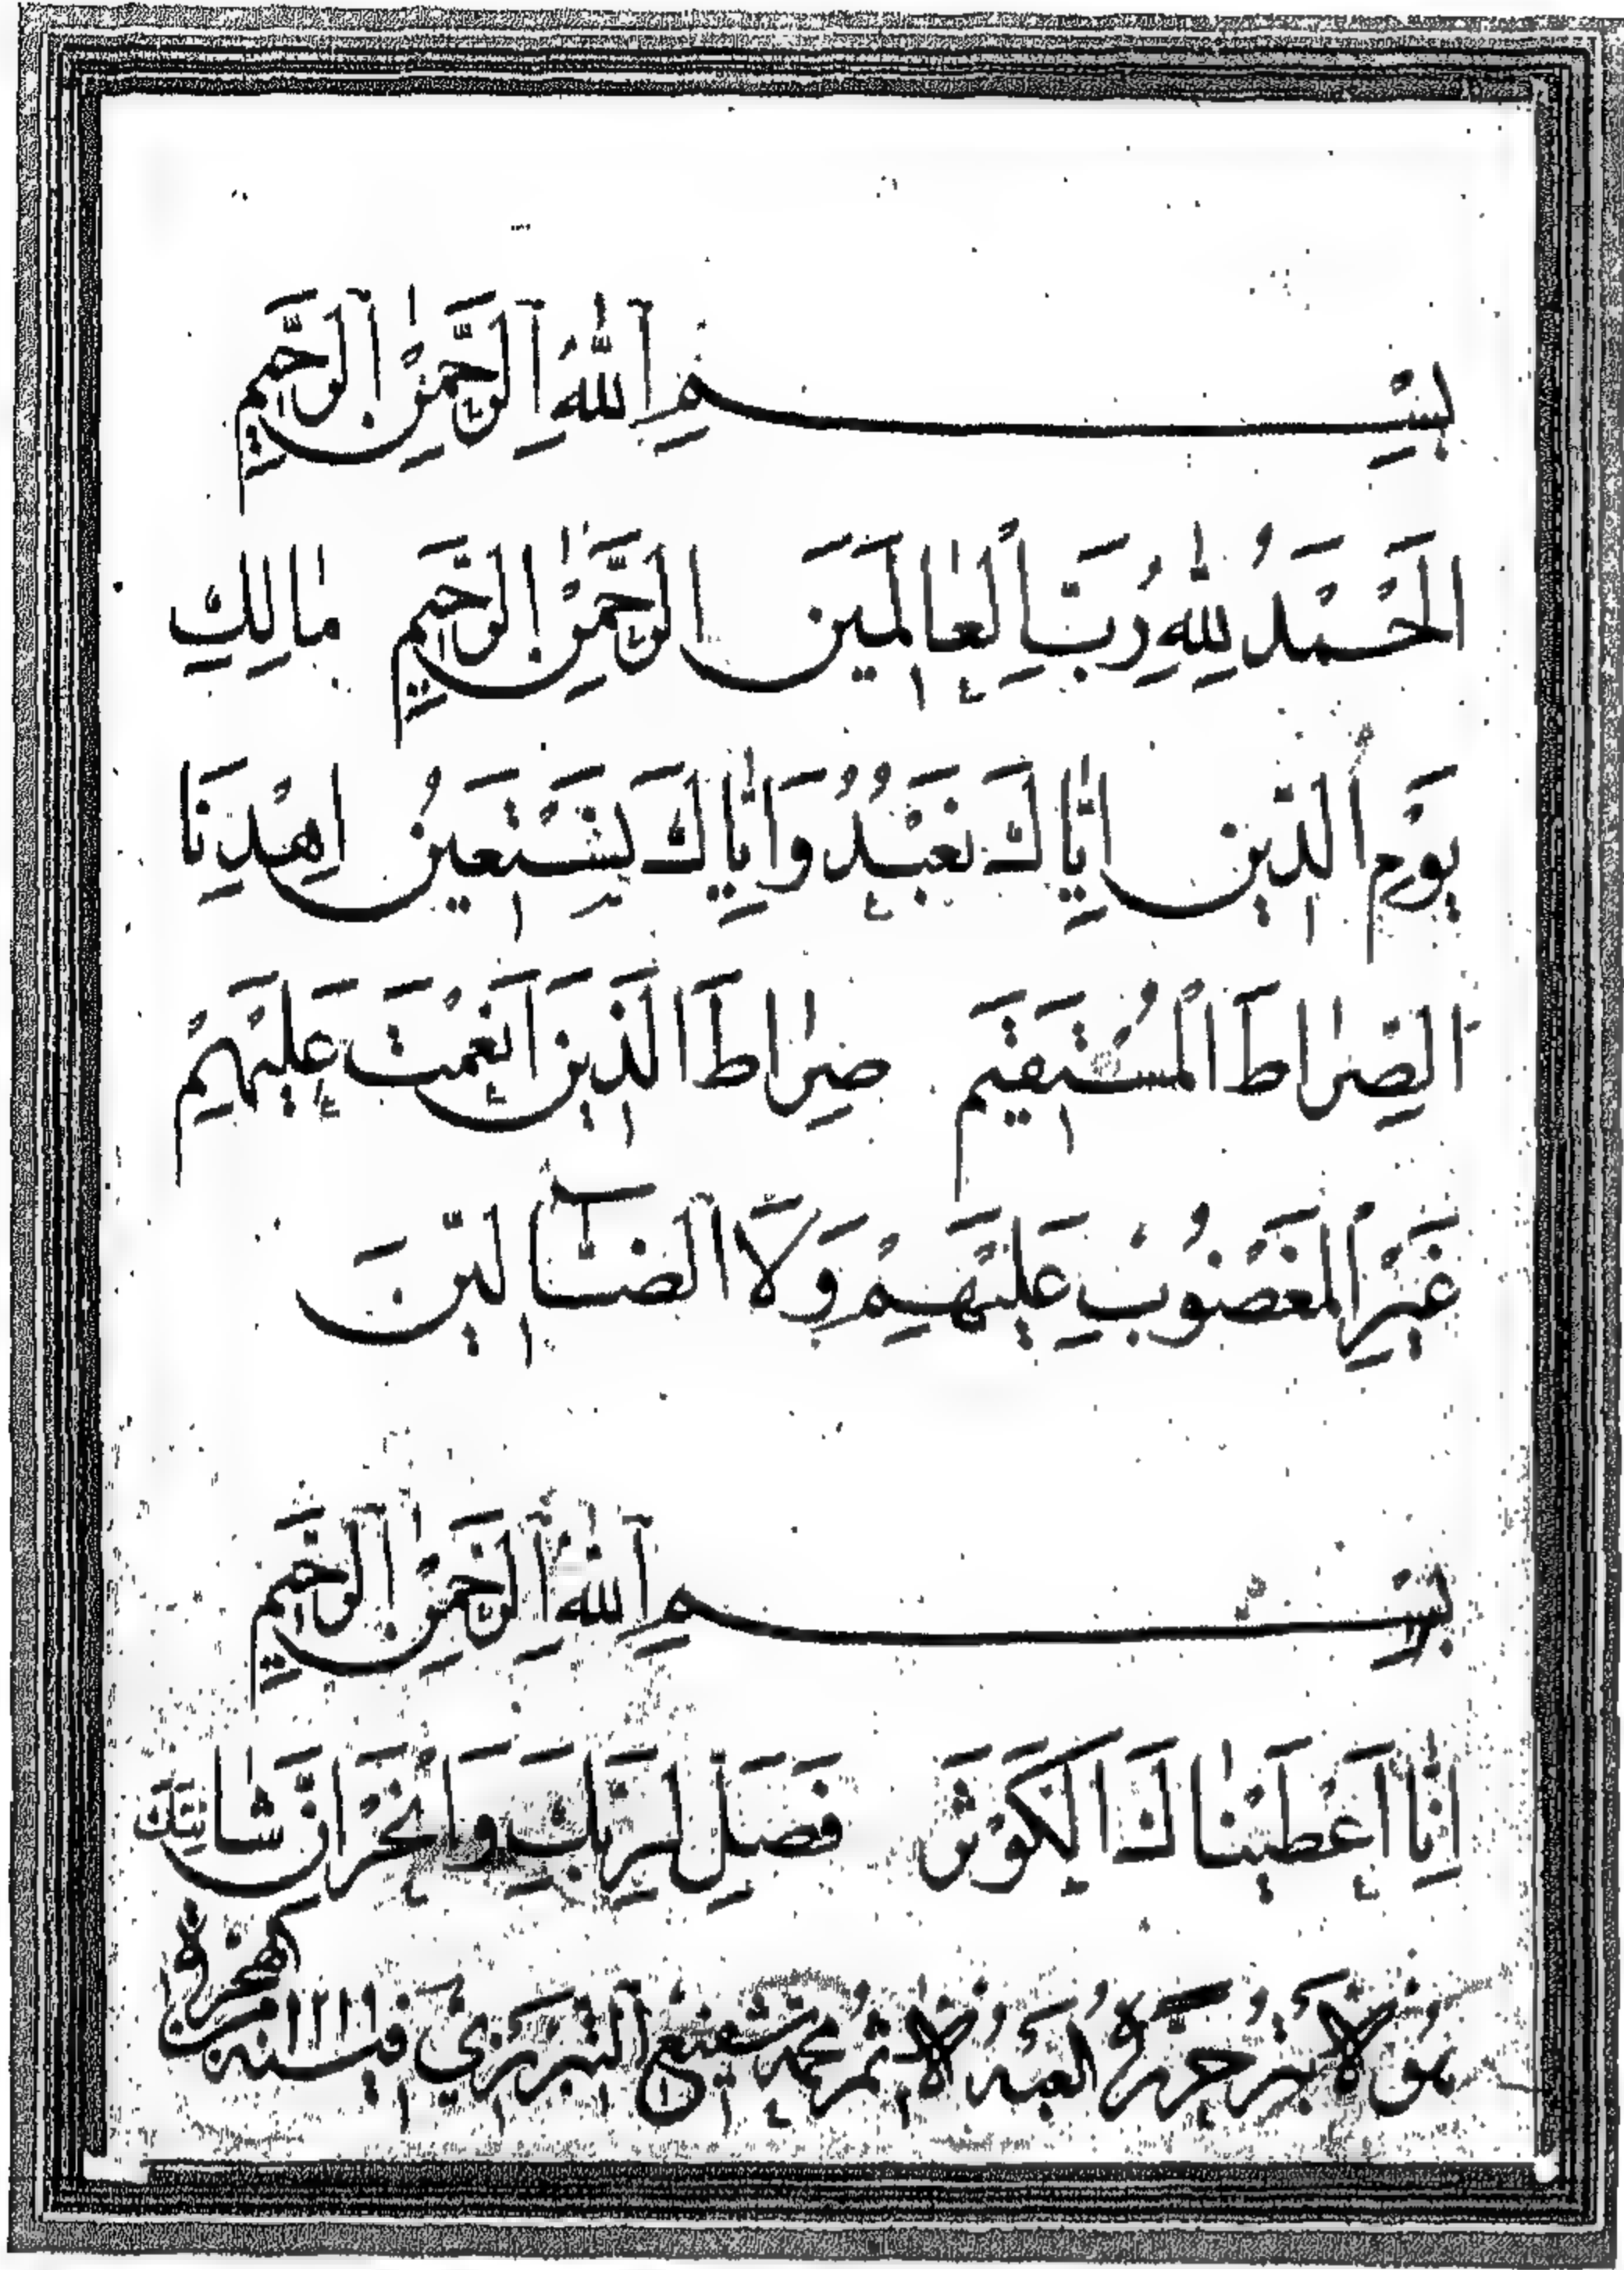 بِسْمِ اللّٰهِ الرَّحْمٰنِ الرَّحِيمِ
اَلْحَمْدُ لِلّٰهِ رَبِّ الْعَالَمِينَ الرَّحْمٰنِ الرَّحِيمِ مَالِكِ
يَوْمِ الدِّينِ اِيَّاكَ نَعْبُدُ وَاِيَّاكَ نَسْتَعِينُ اِهْدِنَا
الصِّرَاطَ الْمُسْتَقِيمَ صِرَاطَ الَّذِينَ اَنْعَمْتَ عَلَيْهِمْ
غَيْرِ الْمَغْضُوبِ عَلَيْهِمْ وَلَا الضَّالِّينَ
بِسْمِ اللّٰهِ الرَّحْمٰنِ الرَّحِيمِ
اِنَّا اَعْطَيْنَاكَ الْكَوْثَرَ فَصَلِّ لِرَبِّكَ وَانْحَرْ اِنَّ شَانِئَكَ
هُوَ الْاَبْتَرُ حرره العبد الاثم محمد شفيع التبريزي في سنه ١٢١١ من الهجرة